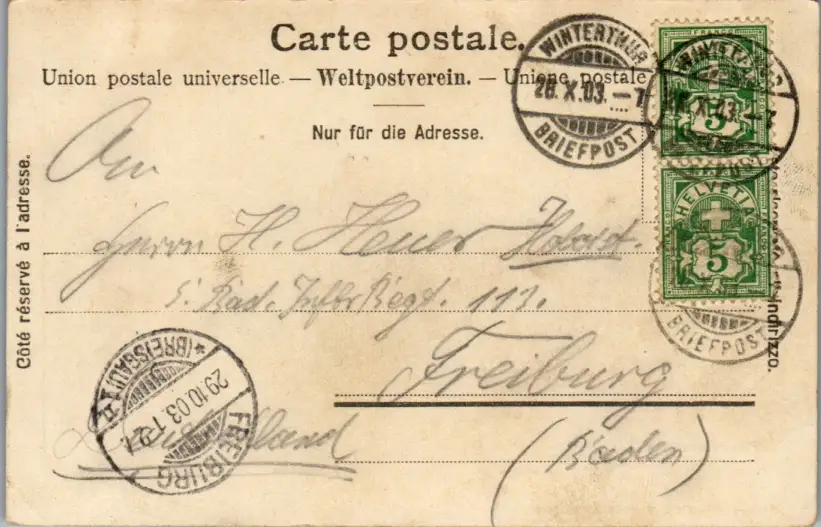 Carte postale.
Union postale universelle. — Weltpostverein. — Unione postale
Nur für die Adresse.
Côté réservé à l'adresse.
WINTERTHUR
28.X.03.–7
BRIEFPOST
FRANCO
5
HELVETIA
5
BRIEFPOST
An
Herrn H. Heuer
5. Bad. Inftr Regt. 113.
Freiburg
(Baden)
Deutschland
FREIBURG
29.10.03.
(BREISGAU)